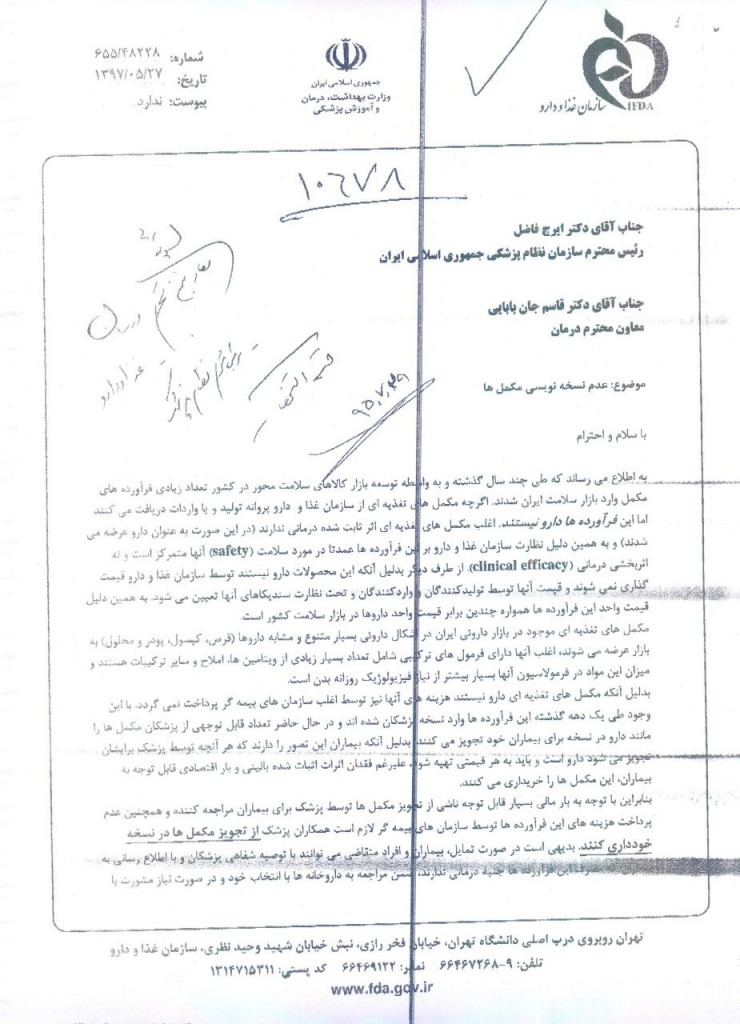 شماره: ۶۵۵/۴۸۲۲۸
تاریخ: ۱۳۹۷/۰۵/۲۷
پیوست: ندارد
جمهوری اسلامی ایران
وزارت بهداشت، درمان
و آموزش پزشکی
سازمان غذا و دارو
IFDA
۱۰۶۷۸
جناب آقای دکتر ایرج فاضل
رئیس محترم سازمان نظام پزشکی جمهوری اسلامی ایران
جناب آقای دکتر قاسم جان بابایی
معاون محترم درمان
موضوع: عدم نسخه نویسی مکمل ها
با سلام و احترام
به اطلاع می رساند که طی چند سال گذشته و به واسطه توسعه بازار کالاهای سلامت محور در کشور تعداد زیادی فرآورده های
مکمل وارد بازار سلامت ایران شدند. اگرچه مکمل های تغذیه ای از سازمان غذا و دارو پروانه تولید و یا واردات دریافت می کنند
اما این فرآورده ها دارو نیستند. اغلب مکمل های تغذیه ای اثر ثابت شده درمانی ندارند (در این صورت به عنوان دارو عرضه می
شدند) و به همین دلیل نظارت سازمان غذا و دارو بر این فرآورده ها عمدتا در مورد سلامت (safety) آنها متمرکز است و نه
اثربخشی درمانی (clinical efficacy). از طرف دیگر بدلیل آنکه این محصولات دارو نیستند توسط سازمان غذا و دارو قیمت
گذاری نمی شوند و قیمت آنها توسط تولیدکنندگان و واردکنندگان و تحت نظارت سندیکاهای آنها تعیین می شود. به همین دلیل
قیمت واحد این فرآورده ها همواره چندین برابر قیمت واحد داروها در بازار سلامت کشور است.
مکمل های تغذیه ای موجود در بازار داروئی ایران در اشکال داروئی بسیار متنوع و مشابه داروها (قرص، کپسول، پودر و محلول) به
بازار عرضه می شوند، اغلب آنها دارای فرمول های ترکیبی شامل تعداد بسیار زیادی از ویتامین ها، املاح و سایر ترکیبات هستند و
میزان این مواد در فرمولاسیون آنها بسیار بیشتر از نیاز فیزیولوژیک روزانه بدن است.
بدلیل آنکه مکمل های تغذیه ای دارو نیستند هزینه های آنها نیز توسط اغلب سازمان های بیمه گر پرداخت نمی گردد. با این
وجود طی یک دهه گذشته این فرآورده ها وارد نسخه پزشکان شده اند و در حال حاضر تعداد قابل توجهی از پزشکان مکمل ها را
مانند دارو در نسخه برای بیماران خود تجویز می کنند. بدلیل آنکه بیماران این تصور را دارند که هر آنچه توسط پزشک برایشان
تجویز می شود دارو است و باید به هر قیمتی تهیه شود، علیرغم فقدان اثرات اثبات شده بالینی و بار اقتصادی قابل توجه به
بیماران، این مکمل ها را خریداری می کنند.
بنابراین با توجه به بار مالی بسیار قابل توجه ناشی از تجویز مکمل ها توسط پزشک برای بیماران مراجعه کننده و همچنین عدم
پرداخت هزینه های این فرآورده ها توسط سازمان های بیمه گر لازم است همکاران پزشک از تجویز مکمل ها در نسخه
خودداری کنند. بدیهی است در صورت تمایل، بیماران و افراد متقاضی می توانند با توصیه شفاهی پزشکان و با اطلاع رسانی به
مصرف این فرآورده ها جنبه درمانی ندارند، ضمن مراجعه به داروخانه ها با انتخاب خود و در صورت نیاز مشورت با
تهران روبروی درب اصلی دانشگاه تهران، خیابان فخر رازی، نبش خیابان شهید وحید نظری، سازمان غذا و دارو
تلفن: ۹-۶۶۴۶۷۲۶۸ نمابر: ۶۶۴۶۹۱۲۲ کد پستی: ۱۳۱۴۷۱۵۳۱۱
www.fda.gov.ir